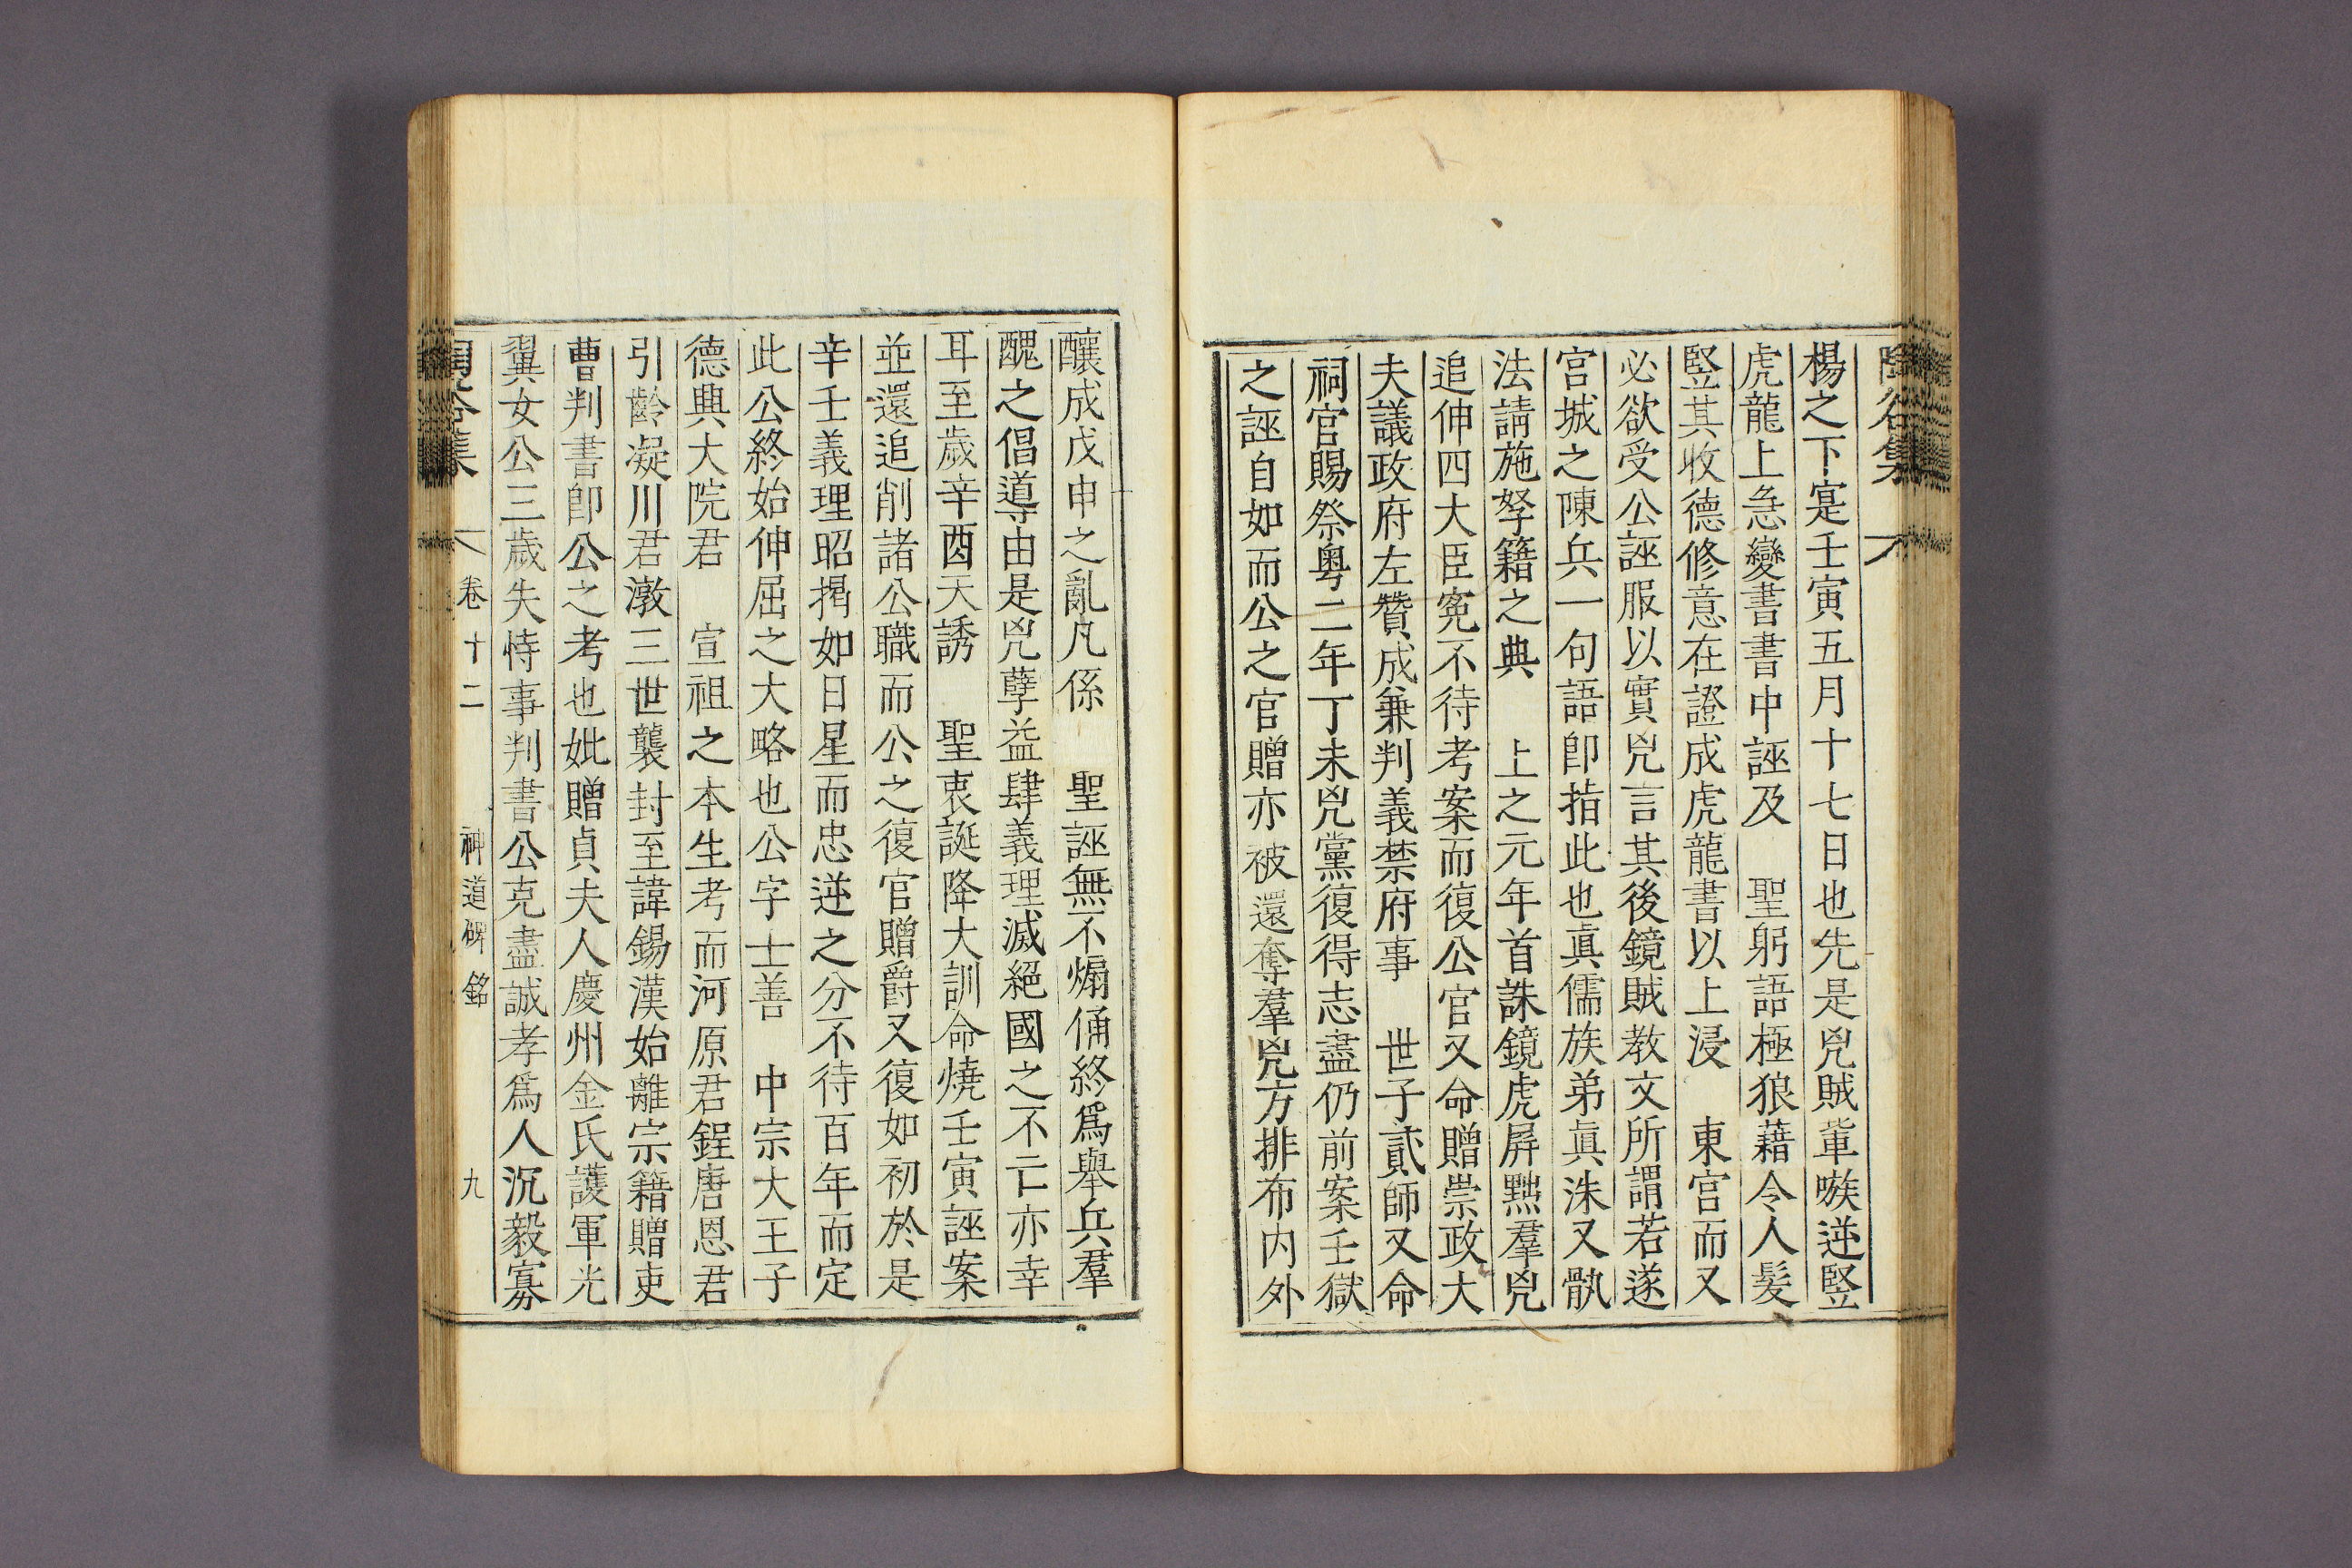 楊之下寔壬寅五月十七日也先是兇賊軰嗾逆竪
虎龍上急變書書中誣及 聖躬語極狼藉令人髮
竪其收德修意在證成虎龍書以上浸 東宮而又
必欲受公誣服以實兇言其後鏡賊教文所謂若遂
宮城之陳兵一句語卽指此也眞儒族弟眞洙又骩
法請施孥籍之典 上之元年首誅鏡虎屛黜羣兇
追伸四大臣寃不待考案而復公官又命贈崇政大
夫議政府左贊成兼判義禁府事 世子貳師又命
祠官賜祭粤二年丁未兇黨復得志盡仍前案壬獄
之誣自如而公之官贈亦被還奪羣兇方排布内外
釀成戊申之亂凡係 聖誣無不煽俑終爲舉兵羣
醜之倡導由是兇孽益肆義理滅絕國之不亡亦幸
耳至歲辛酉天誘 聖衷誕降大訓命燒壬寅誣案
並還追削諸公職而公之復官贈爵又復如初於是
辛壬義理昭揭如日星而忠逆之分不待百年而定
此公終始伸屈之大略也公字士善 中宗大王子
德興大院君 宣祖之本生考而河原君鋥唐恩君
引齡凝川君潡三世襲封至諱錫漢始離宗籍贈吏
曹判書卽公之考也妣贈貞夫人慶州金氏護軍光
翼女公三歲失恃事判書公克盡誠孝爲人沉毅寡
卷十二 神道碑銘 九